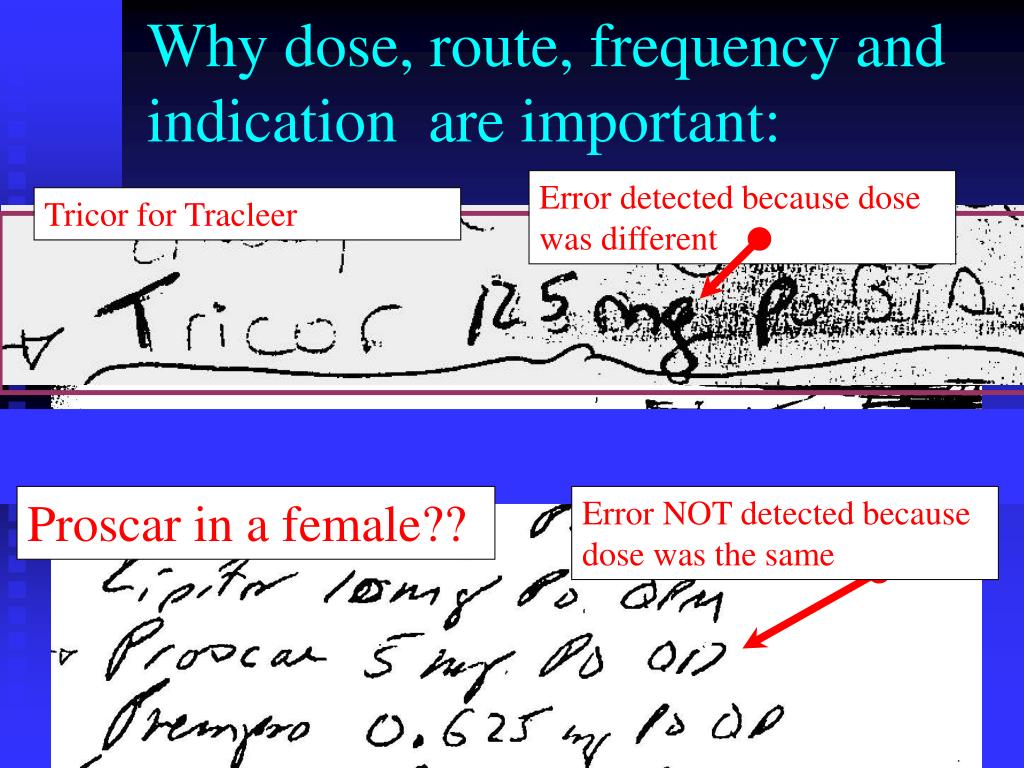 Why dose, route, frequency and
indication are important:
Tricor for Tracleer
Error detected because dose
was different
Tricor 125 mg Po BID
Proscar in a female??
Error NOT detected because
dose was the same
Lipitor 10mg Po. QPM
Proscar 5 mg. Po OD
Prempro 0.625 mg Po QD